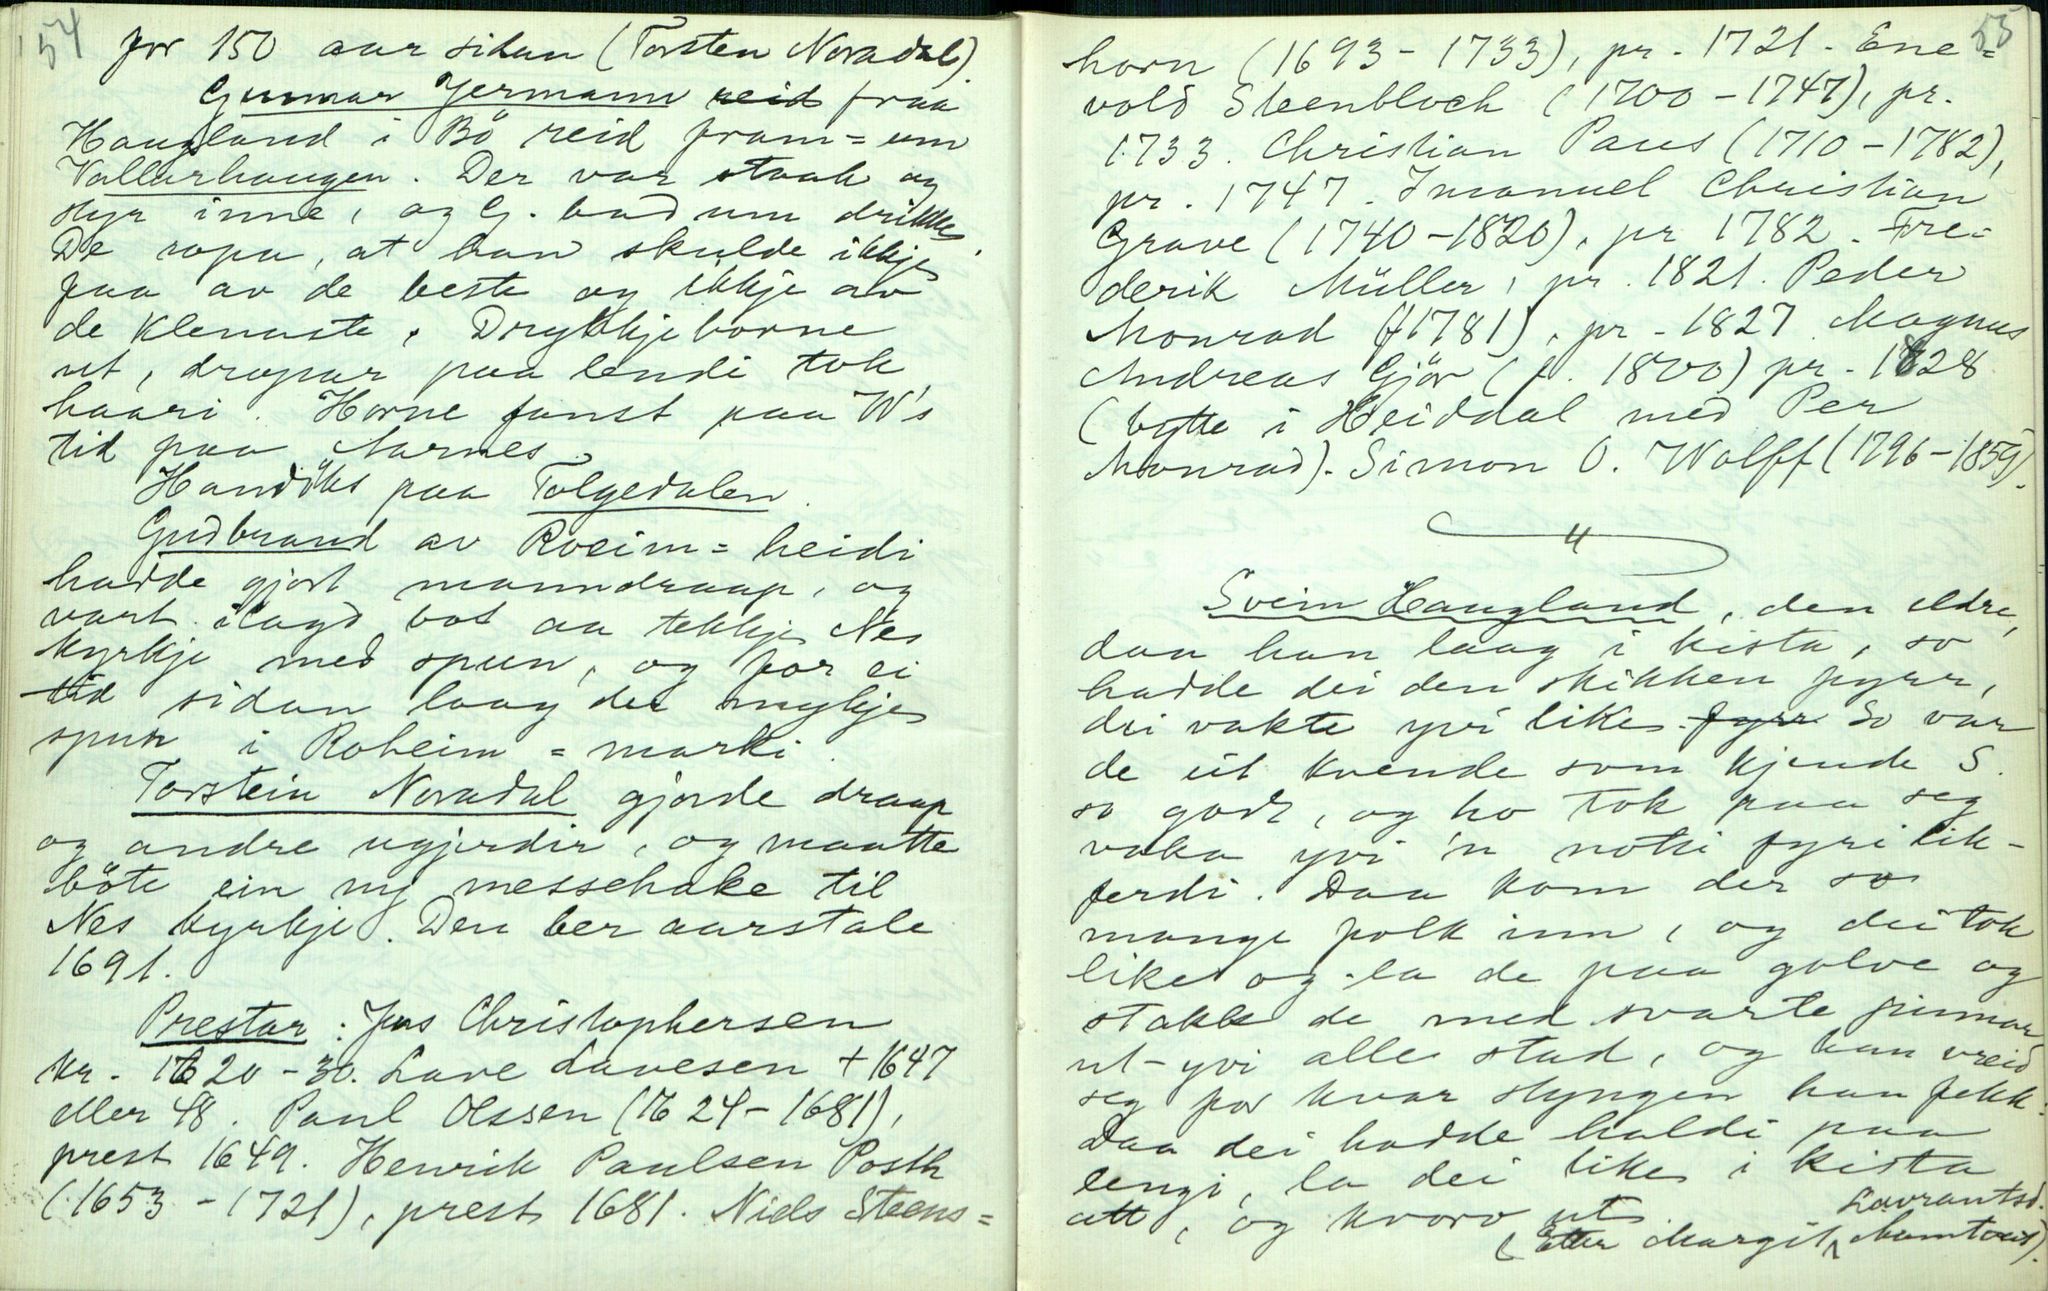 54
for 150 aar sidan (Torsten Noradal).
Gunnar Jermann reid fraa
Haugland i Bö reid fram=um
Vallarhaugen. Der var staak og
styr inne, og G. bad um drikke.
De ropa, at han skulde ikkje
faa av de beste og ikkje av
de klenaste. Drykkjehorne
ut, dropar paa lendi tok
haari. Horne fanst paa W's
tid paa Aarnes.
Handöks paa Tolgedalen.
Gudbrand av Roeim=heidi
hadde gjort manndraap, og
vart ilagd bot aa tekkje Nes
kyrkje med spun, og for ei
tid sidan laag der mykje
spun i Roheim=marki.
Torstein Noradal gjorde draap
og andre ugjerdir, og maatte
böte ein ny messehake til
Nes kyrkje. Den ber aarstale
1691.
Prestar: Jens Christophersen
kr. 1620-30. Lave Lavesen + 1647
eller 48. Paul Olssen (1624-1681),
prest 1649. Henrik Paulsen Posth
(1653-1721), prest 1681. Niels Steens=
55
horn (1693-1733), pr. 1721. Ene=
vold Steenbloch (1700-1747), pr.
1733. Christian Paus (1710-1782),
pr. 1747. Imanuel Christian
Grave (1740-1820), pr 1782. Fre=
derik Müller, pr. 1821. Peder
Monrad (f 1781), pr. 1827 Magnus
Andreas Gjör (f. 1800) pr. 1828
(bytte i Heiddal med Per
Monrad). Simon O. Wolff (1796-1859).
Svein Haugland, den eldre,
daa han laag i kista, so
hadde dei den skikken fyrr,
dei vakte yvi like. fyrr So var
de eit kvende som kjende S.
so godt, og ho tok paa seg
vaka yvi 'n notti fyri lik-
ferdi. Daa kom der so
mange folk inn, og dei tok
like og la de paa golve og
stakk de med svarte pinnar
ut-yvi alle stad, og han vreid
seg for kvar styngen han fekk.
Daa dei hadde haldi paa
lengi, la dei like i kista
att, og kvorv ut.
Lavrantsd.
(Etter Margit Aamtveit).